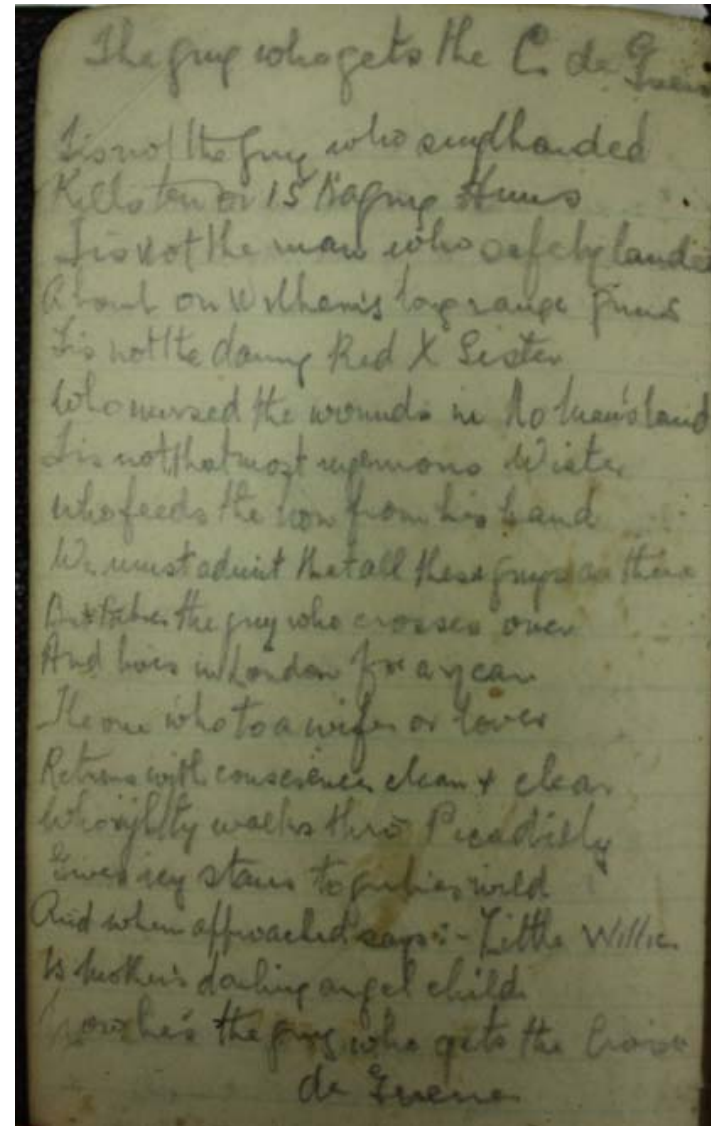 The guy who gets the C. de Guerre
Tis not the guy who singlhanded
Kills ten or 15 Raging Huns
Tis not the man who safely landed
A bout on William's long range guns
Tis not the daring Red X Sister
Who nursed the wounds in No Man's land
Tis not that most ingenious Mister
who feeds the lion from his hand
We must admit that all these guys are there
But the guy who crosses over
And lives in London for a year
The one who to a wife or lover
Returns with conscience clean + clear
Who nightly walks thro Piccadilly
Gives icy stares to frolics wild
And when approached says :- Little Willie
Is Mother's darling angel child
he's the guy who gets the Croix
de Guerre